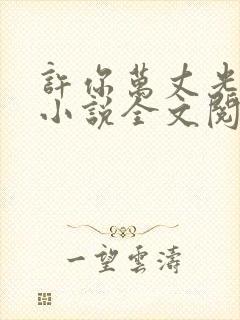 許你萬丈光
小說全文閱
一望雲濤